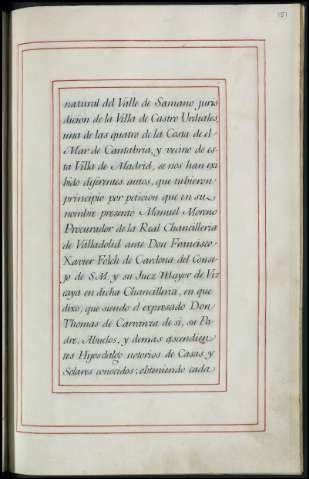 151
natural del Valle de Samano juris
dicion de la Villa de Castro Urdiales,
una de las quatro de la Costa de el
Mar de Cantabria, y vecino de es-
ta Villa de Madrid, se nos han exi
bido diferentes autos, que tubieron
principio por peticion que en su
nombre presentó Manuel Moreno
Procurador de la Real Chancilleria
de Valladolid ante Don Francisco
Xavier Folch de Cardona del Conse-
jo de S.M. y su Juez Mayor de Viz
caya en dicha Chancilleria, en que
dixo, que siendo el expresado Don
Thomas de Carranza de sí, su Pa-
dre, Abuelos, y demas ascendien
tes Hijosdalgo notorios de Casas, y
Solares conocidos; obteniendo cada